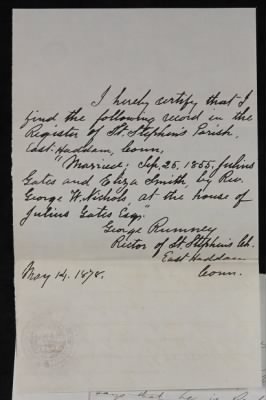 I hereby certify that I
find the following record in the
Register of St. Stephen's Parish,
East-Haddam, Conn.
"Married; Sep. 25, 1855, Julius
Gates and Eliza Smith, by Rev.
George W. Nichols, at the house of
Julius Gates Esq."
George Rumney
Rector of St Stephen's Ch.
East Haddam
Conn.
May 14. 1878.
says that he is